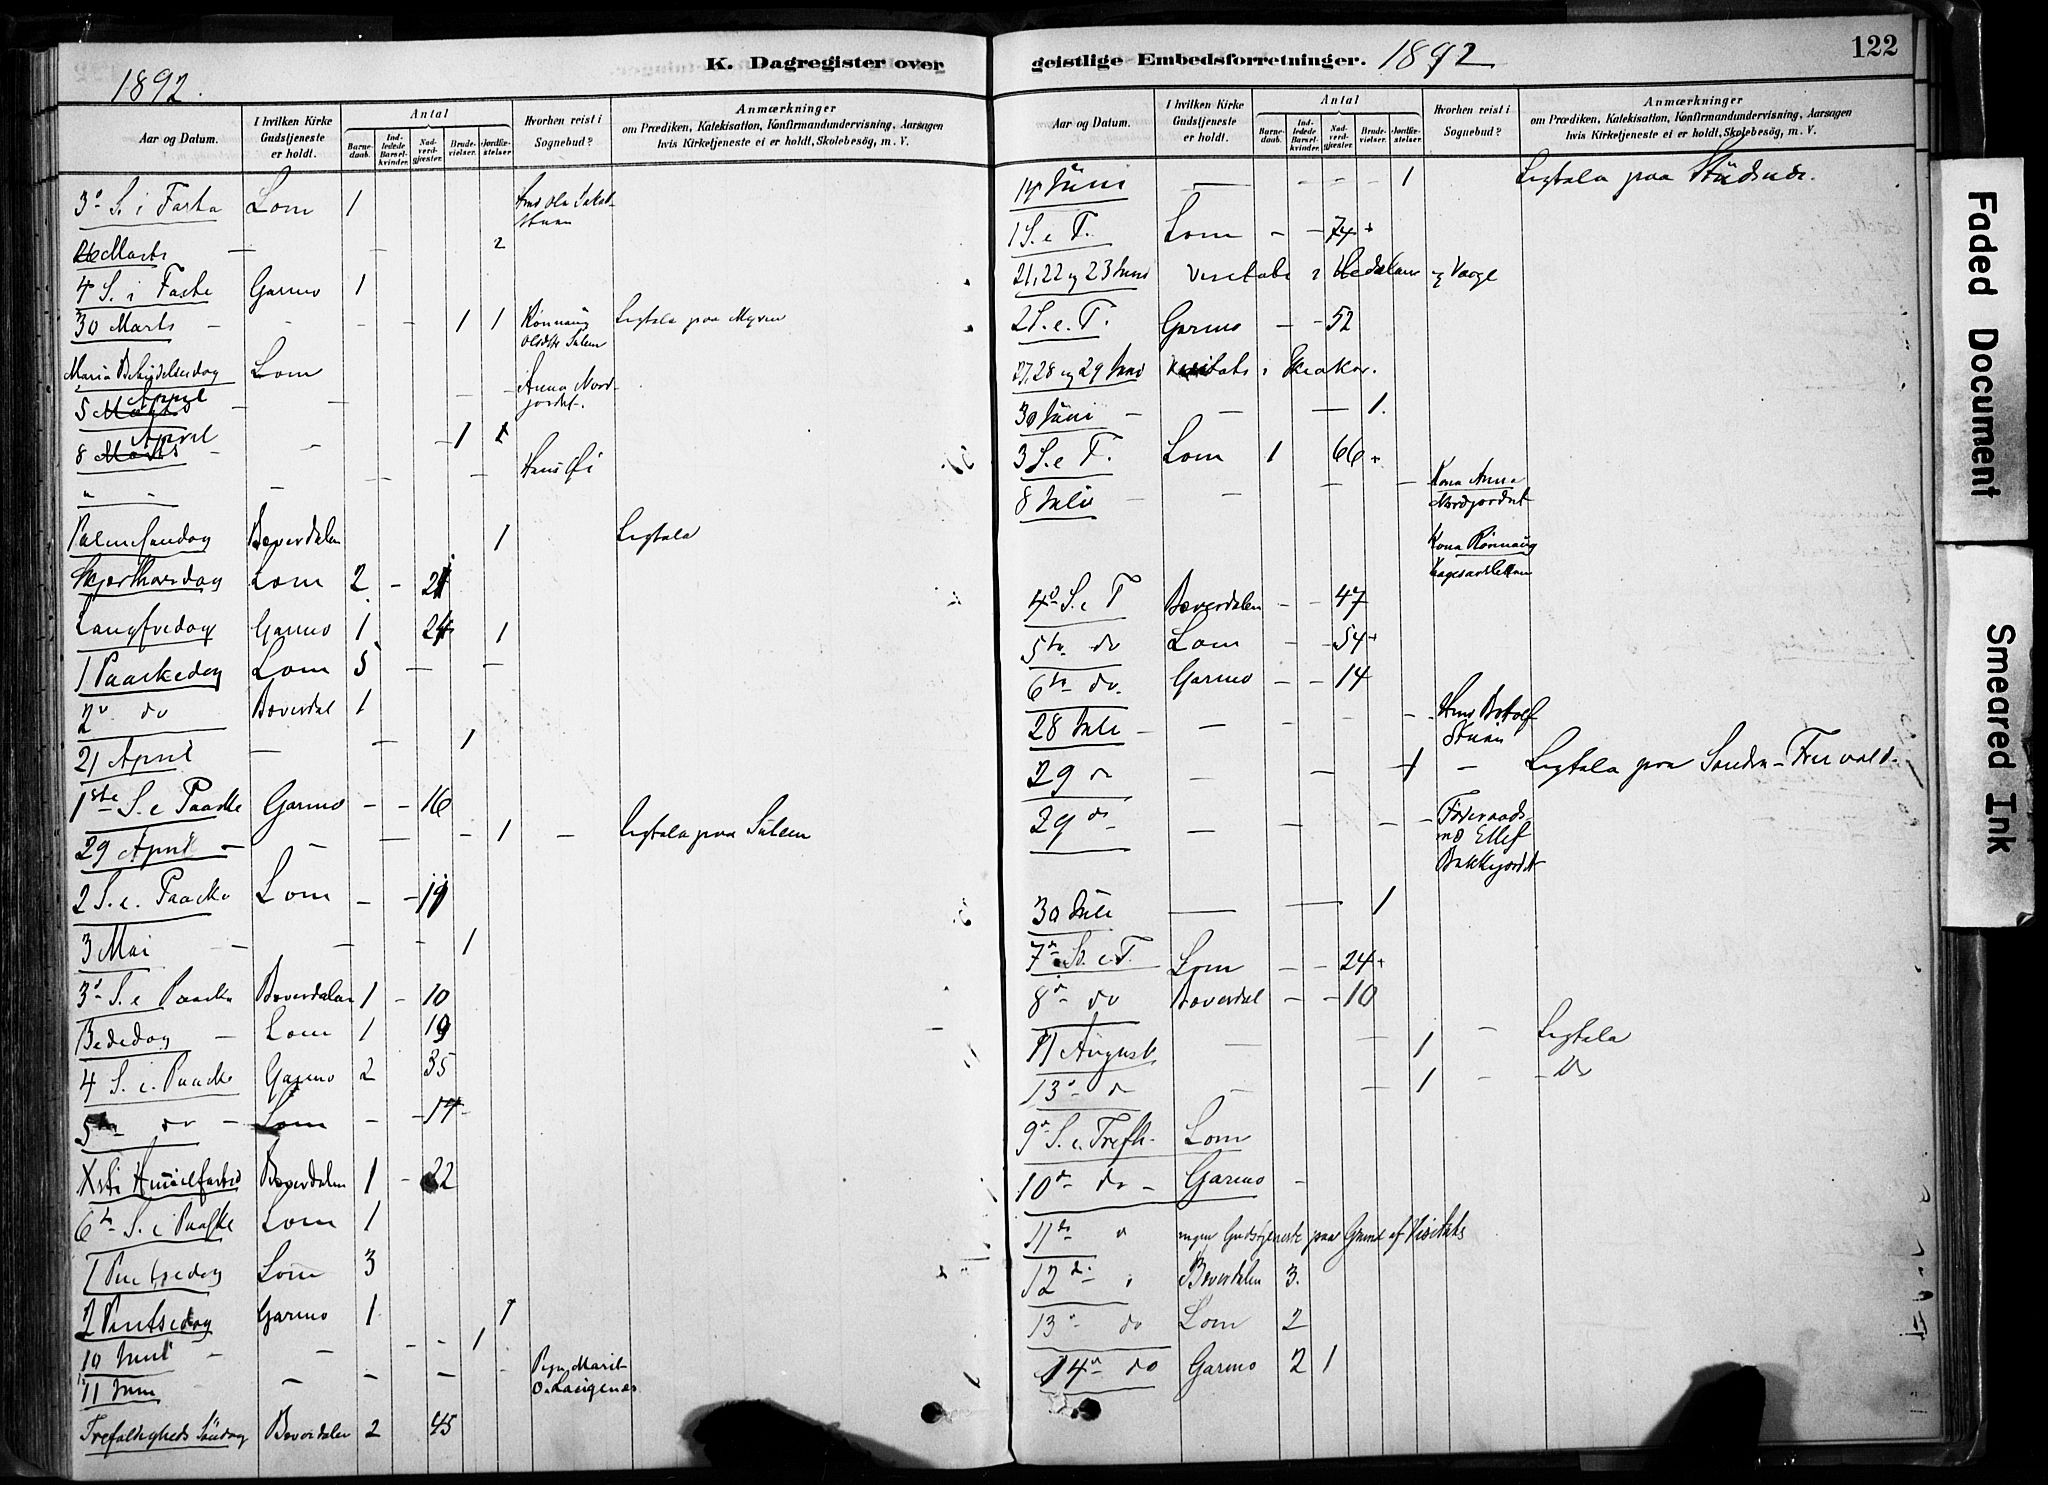 1892.
K. Dagregister over
Aar og Datum.
I hvilken Kirke Gudstjeneste er holdt.
Antal
Barnedaab.
Indledede Barselkvinder.
Nadverdgjester.
Brudevielser.
Jordfæstelser
Hvorhen reist i Sognebud?
Anmærkninger
om Prædiken, Katekisation, Konfirmandundervisning, Aarsagen
hvis Kirketjeneste ei er holdt, Skolebesög, m. V.
3d S. i Faste Lom 1
26 Marts — — 2
4 S. i Faste Garmo 1
30 Marts - - - - 1 1 Rønnaug Sulem Ligtale paa Myren
Maria Bebudelsesdag Lom
5 Marts April - - - - Anna Nordjordet.
8 Marts April - - - 1 1
" - - - - Hans
Palmesøndag Bæverdalen 1 Ligtale
Skjærthorsdag Lom 2 - 21
Langfredag Garmo 1 24 1
1 Paaskedag Lom 5 - -
2n do Bæverdal 1
21 April — - 1
1ste S. e Paaske Garmo - - 16
29 April - - - - 1 - Ligtale paa Sulem
2 S. e. Paaske Lom - - 19
3 Mai - - - 1
3d S. e Paaske Bæverdalen 1 - 10
Bededag - Lom 1 19
4 S. e. Paaske Garmo 2 35
5te do - Lom - - 17
Xsti Himmelfartsd Bæverdalen 1 - 22
6te S. e Paaske Lom 1
1 Pintsedag Lom 3
2 Pintsedag Garmo 1 1
10 Juni - - - - 1
11 Juni - - - - Marit
Trefoldigheds Söndag Bæverdalen 2 45
geistlige Embedsforretninger. 1892
122
Aar og Datum.
I hvilken Kirke Gudstjeneste er holdt.
Antal
Barnedaab.
Indledede Barselkvinder.
Nadverdgjester.
Brudevielser.
Jordfæstelser.
Hvorhen reist i Sognebud?
Anmærkninger
om Prædiken, Katekisation, Konfirmandundervisning, Aarsagen
hvis Kirketjeneste ei er holdt, Skolebesög, m. V.
14 Juni — - - - - 1 Ligtale paa
1 S. e T. Lom - - 74
21, 22 og 23 Juni Visitats i Hedalen og Vaage
2 S. e. T. Garmo - - 52
27, 28 og 29 Juni Visitats i Skiaker.
30 Juni - — — 1.
3 S. e T. Lom 1 66
8 Juli - - - - Kona Anna
Nordjordet
Kona Rønnaug
4d S. e T Bæverdalen - - 47
5te do Lom - - 54
6te do. Garmo - - 14
28 Juli - - - - - -
29 - - 1 - Ligtale paa
29 do - - - - Föderaads-
md Ellef
Bakkejordet
30 Juli — — 1
7d S. e. T. Lom - - 24
8d do Bæverdal - - 10
11 August - - 1 - Ligtale
13d do - - 1 - - Do
9d S. e. Trefh. Lom
10d do - Garmo -
11te ingen Gudstjeneste paa Grund af Visitats
12d Bæverdalen 3.
13d do Lom 2
14d do Garmo 2 1
Faded Document
Smeared Ink